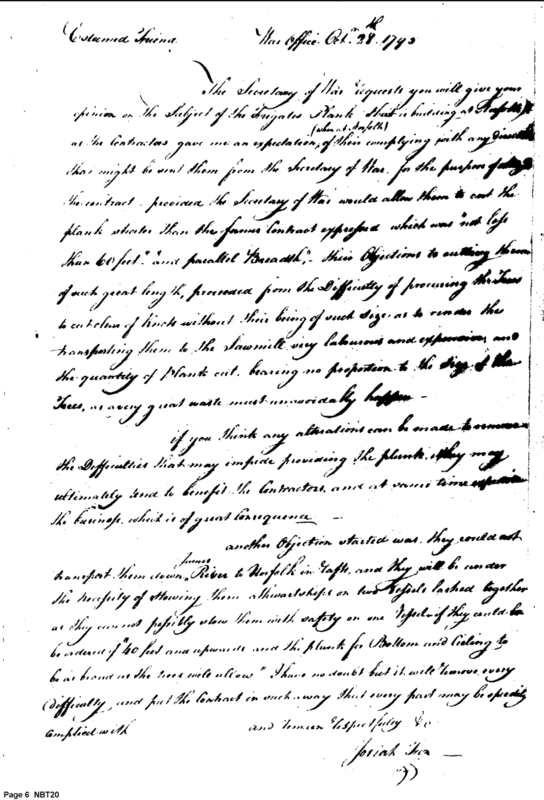 Esteemed Friend War Office Octr 28th 1795
The Secretary of War requests you will give your
opinion on the Subject of the Frigates Plank that is building at Norfolk
(when at Norfolk)
as the Contractors gave me an expectation, of their complying with any
that might be sent them from the Secretary of War, for the purpose of
the contract - provided the Secretary of War would allow them to cut the
plank shorter than the former Contract expressed which was "not less
than 60 feet" "and parallel Breadth", - their Objections to cutting them
of such great length, proceeded from the Difficulty of procuring the Trees
to cut clear of knots without their being of such size as to render the
transporting them to the Sawmill very labourous and expensive, and
the quantity of Plank cut, bearing no proportion to the size of the
Trees, as a very great waste must unavoidably happen -
if you think any alterations can be made to remove
the Difficulties that may impede providing the plank, they may
ultimately tend to benefit the Contractors, and at same time expedite
the business, which is of great Consequence -
another Objection started was, they could not
James
transport them down River to Norfolk in rafts, and they will be under
the necessity of Stowing them athwartships on two Vessels lashed together
as they can not possibly stow them with safety on one Vessel - if they could be
be ordered of "40 feet and upwards and the plank for Bottom and Cieling to
be as broad as the trees will allow" I have no doubt but it will remove every
difficulty, and put the Contract in such a way that every part may be speedily
complied with and remain respectfully &c
Josiah Fox
Page 6 NBT20